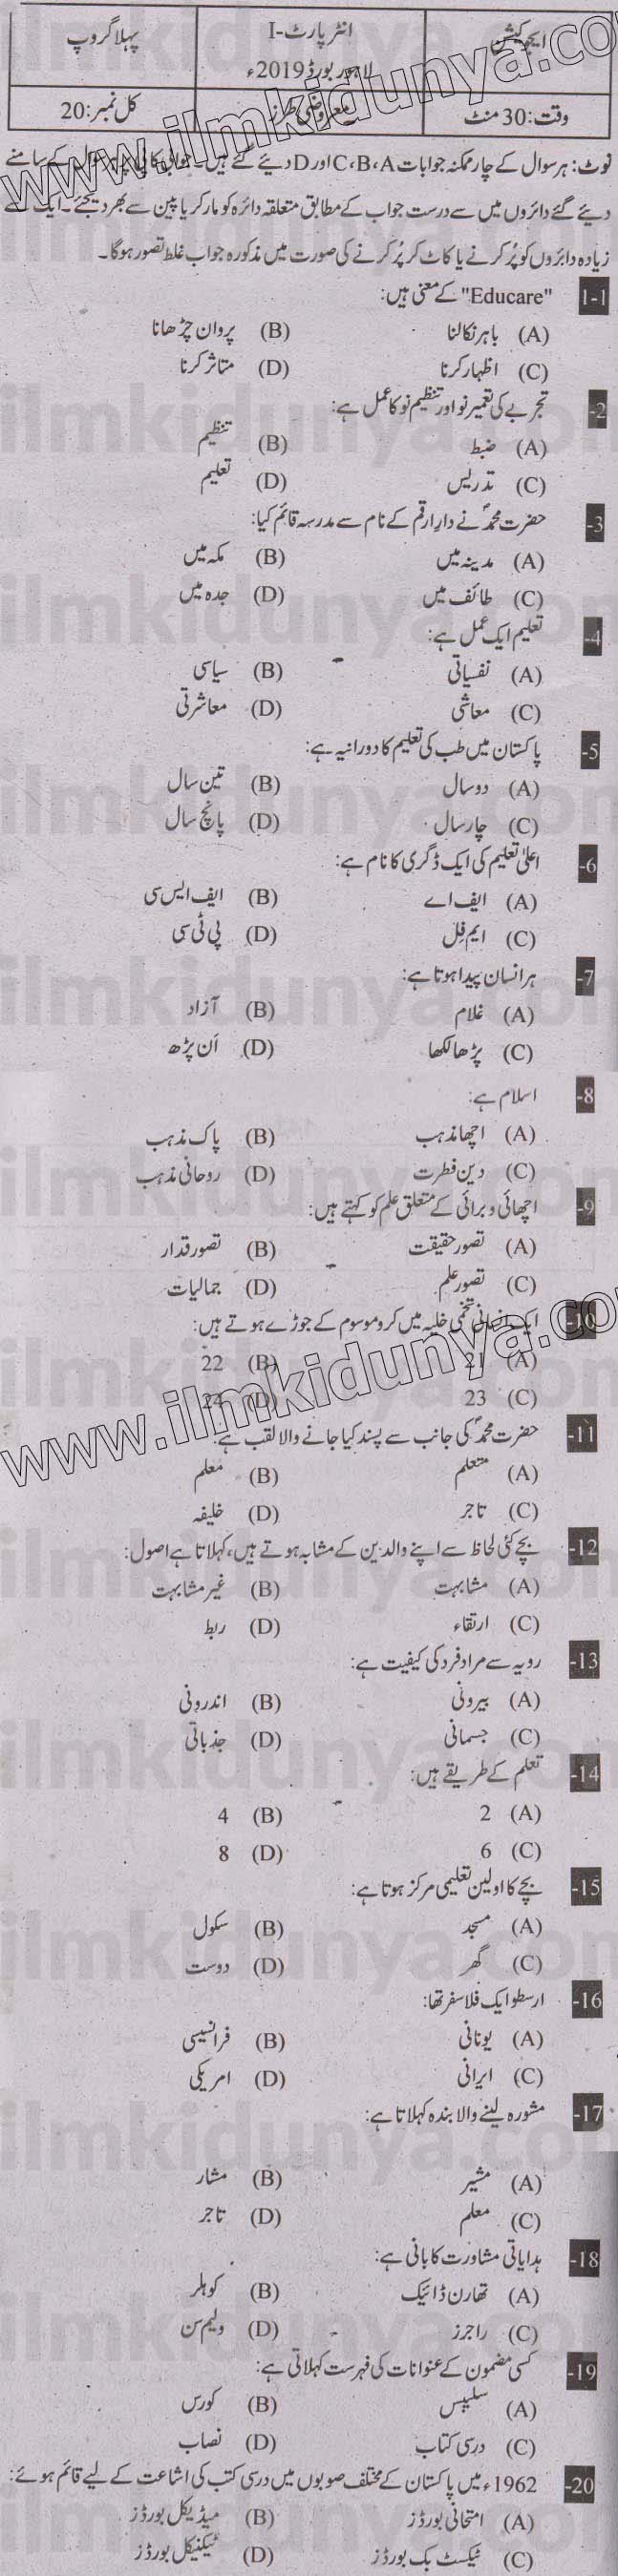 ایجوکیشن انٹر پارٹ-I پہلا گروپ
لاہور بورڈ 2019ء
وقت: 30 منٹ معروضی طرز کل نمبر: 20
نوٹ: ہر سوال کے چار ممکنہ جوابات C،B،A اور D دیئے گئے ہیں۔ جوابی کاپی پر ہر سوال کے سامنے
دیئے گئے دائروں میں سے درست جواب کے مطابق متعلقہ دائرہ کو مارکر یا پین سے بھر دیجئے۔ ایک سے
زیادہ دائروں کو پُر کرنے یا کاٹ کر پُر کرنے کی صورت میں مذکورہ جواب غلط تصور ہوگا۔
1-1 "Educare" کے معنی ہیں:
(A) باہر نکالنا (B) پروان چڑھانا
(C) اظہار کرنا (D) متاثر کرنا
-2 تجربے کی تعمیر نو اور تنظیم نو کا عمل ہے:
(A) ضبط (B) تنظیم
(C) تدریس (D) تعلیم
-3 حضرت محمدؐ نے دارِ ارقم کے نام سے مدرسہ قائم کیا:
(A) مدینہ میں (B) مکہ میں
(C) طائف میں (D) جدہ میں
-4 تعلیم ایک عمل ہے:
(A) نفسیاتی (B) سیاسی
(C) معاشی (D) معاشرتی
-5 پاکستان میں طب کی تعلیم کا دورانیہ ہے:
(A) دو سال (B) تین سال
(C) چار سال (D) پانچ سال
-6 اعلیٰ تعلیم کی ایک ڈگری کا نام ہے:
(A) ایف اے (B) ایف ایس سی
(C) ایم فِل (D) پی ٹی سی
-7 ہر انسان پیدا ہوتا ہے:
(A) غلام (B) آزاد
(C) پڑھا لکھا (D) اَن پڑھ
-8 اسلام ہے:
(A) اچھا مذہب (B) پاک مذہب
(C) دین فطرت (D) روحانی مذہب
-9 اچھائی و برائی کے متعلق علم کو کہتے ہیں:
(A) تصور حقیقت (B) تصور قدار
(C) تصور علم (D) جمالیات
-10 ایک انسانی تخمی خلیہ میں کروموسوم کے جوڑے ہوتے ہیں:
(A) 21 (B) 22
(C) 23 (D) 24
-11 حضرت محمدؐ کی جانب سے پسند کیا جانے والا لقب ہے:
(A) متعلم (B) معلم
(C) تاجر (D) خلیفہ
-12 بچے کئی لحاظ سے اپنے والدین کے مشابہ ہوتے ہیں، کہلاتا ہے اصول:
(A) مشابہت (B) غیر مشابہت
(C) ارتقاء (D) ربط
-13 رویہ سے مراد فرد کی کیفیت ہے:
(A) بیرونی (B) اندرونی
(C) جسمانی (D) جذباتی
-14 تعلم کے طریقے ہیں:
(A) 2 (B) 4
(C) 6 (D) 8
-15 بچے کا اولین تعلیمی مرکز ہوتا ہے:
(A) مسجد (B) سکول
(C) گھر (D) دوست
-16 ارسطو ایک فلاسفر تھا:
(A) یونانی (B) فرانسیسی
(C) ایرانی (D) امریکی
-17 مشورہ لینے والا بندہ کہلاتا ہے:
(A) مشیر (B) مشار
(C) معلم (D) تاجر
-18 ہدایاتی مشاورت کا بانی ہے:
(A) تھارن ڈائیک (B) کوہلر
(C) راجرز (D) ولیم سن
-19 کسی مضمون کے عنوانات کی فہرست کہلاتی ہے:
(A) سلیبس (B) کورس
(C) درسی کتاب (D) نصاب
-20 1962ء میں پاکستان کے مختلف صوبوں میں درسی کتب کی اشاعت کے لیے قائم ہوئے:
(A) امتحانی بورڈز (B) میڈیکل بورڈز
(C) ٹیکسٹ بک بورڈز (D) ٹیکنیکل بورڈز
www.ilmkidunya.com
www.ilmkidunya.com